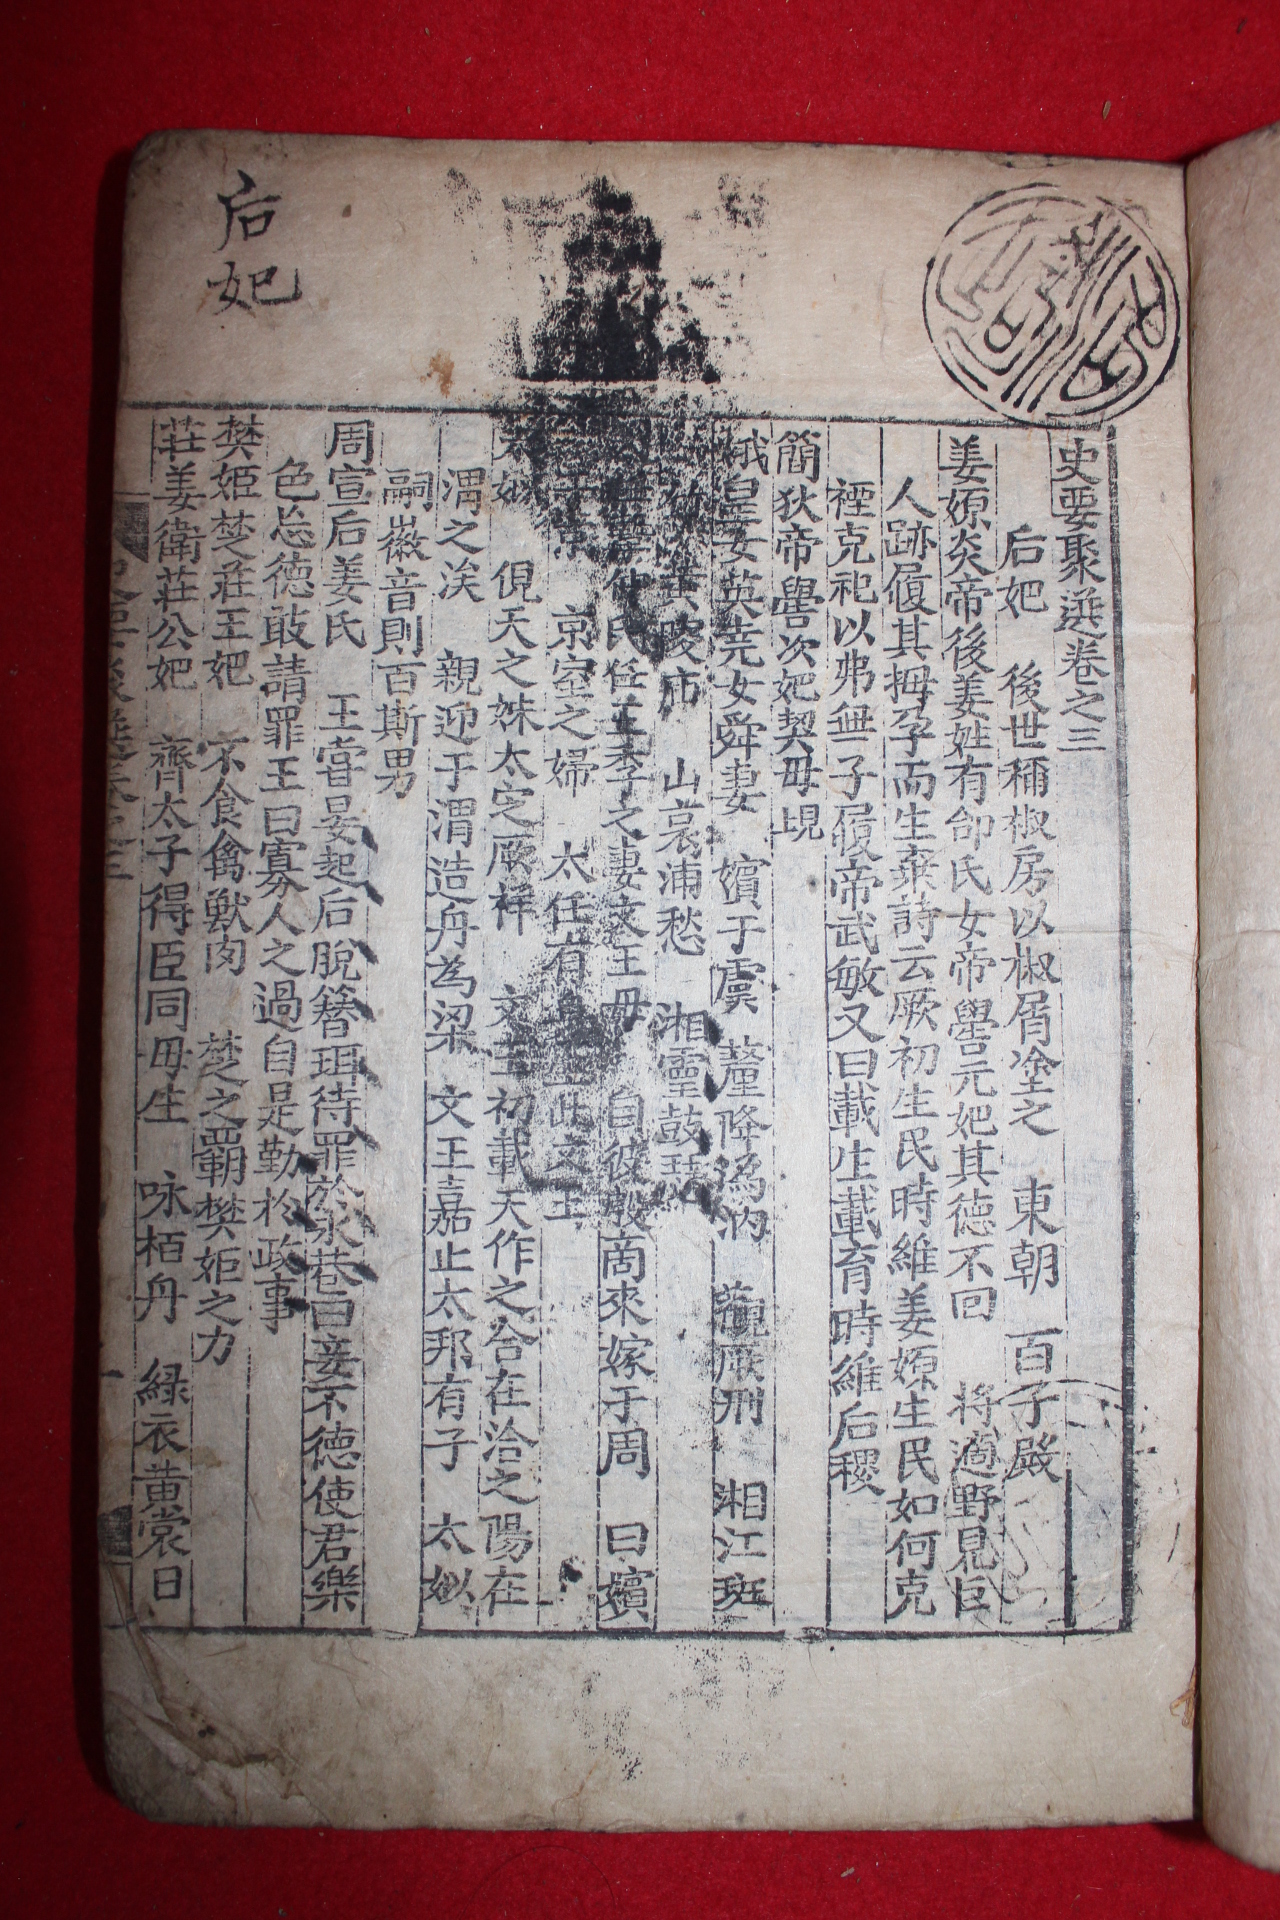 史要聚選卷之三
后妃 後世稱椒房以椒屑塗之 東朝 百子殿
姜嫄炎帝後姜姓有邰氏女帝嚳元妃其德不回 将適野見巨
人跡履其拇孕而生棄詩云厥初生民時維姜嫄生民如何克
禋克祀以弗無子履帝武敏又曰載生載育時維后稷
簡狄帝嚳次妃契母
娥皇女英堯女舜妻 嬪于虞 釐降溈汭 觀厥刑 湘江班
黄陵庙 山哀浦愁 湘靈鼓瑟
氏任王季之妻文王母 自彼殷商來嫁于周 曰嬪
于京 京室之婦 太任有身生此文王
太姒 俔天之妹太定厥祥 文王初載天作之合在洽之陽在
渭之涘 親迎于渭造舟為梁 文王嘉止太邦有子 太姒
嗣徽音則百斯男
周宣后姜氏 王嘗晏起后脫簪珥待罪於永巷曰妾不德使君樂
色忘德敢請罪王曰寡人之過自是勤於政事
樊姬楚莊王妃 不食禽獸肉 楚之覇樊姬之力
莊姜衛莊公妃 齊太子得臣同母生 咏栢舟 緑衣黄裳日
后妃